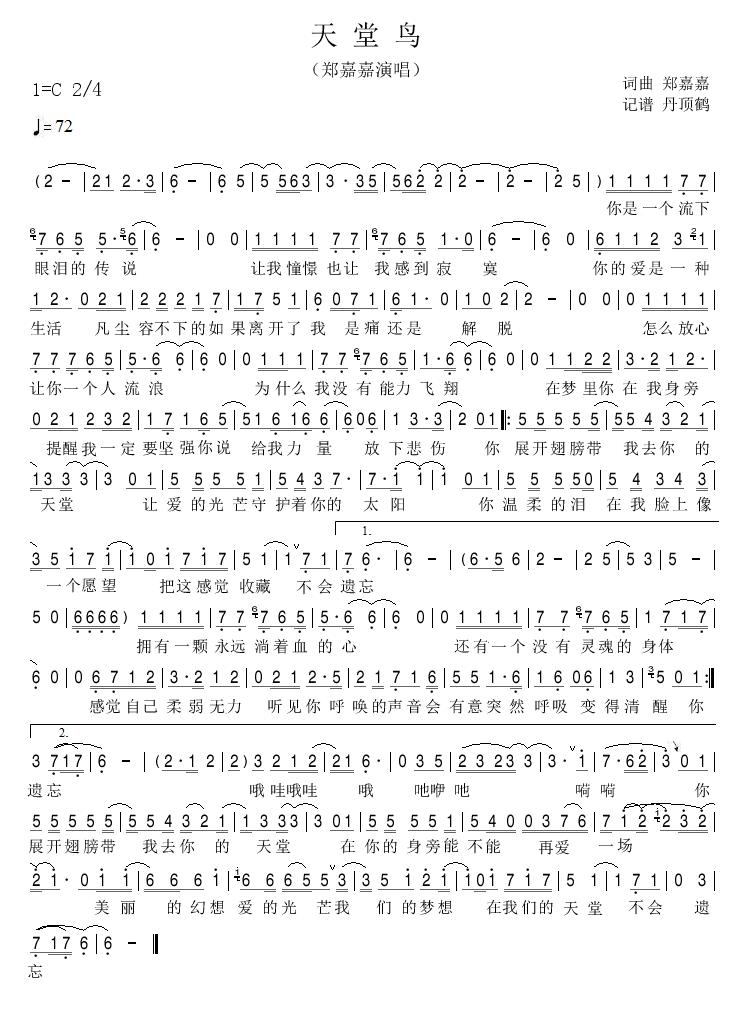 天堂鸟
（郑嘉嘉演唱）
1=C 2/4
词曲 郑嘉嘉
记谱 丹顶鹤
♩= 72
(2 - | 21 2·3 | 6 - | 6 5 | 5 563 | 3·35 | 562 2 | 2 - | 2 - | 2 5 | ) 1 1 1 1 7 7 |
你是一个 流下
7 6 5 5·6 | 6 - | 0 0 | 1 1 1 1 7 7 | 7 6 5 1·0 | 6 - | 6 0 | 6 1 1 2 3 1 |
眼泪的 传 说 让我憧憬 也让 我感到 寂 寞 你的爱是一种
1 2· 0 2 1 | 2 2 2 1 7 | 1 7 5 1 | 6 0 7 1 | 6 1· 0 | 1 0 2 | 2 - | 0 0 | 0 1 1 1 1 |
生活 凡尘 容不下的如 果离开了 我 是痛 还是 解 脱 怎么放心
7 7 7 6 5 | 5·6 6 | 6 0 | 0 1 1 1 | 7 7 7 6 5 | 1·6 6 | 6 0 | 0 1 1 2 2 | 3·2 1 2· |
让你一个人 流浪 为什么 我没有能力 飞翔 在梦里你 在我身旁
0 2 1 2 3 2 | 1 7 1 6 5 | 5 1 6 1 6 6 | 6 0 6 | 1 3·3 | 2 0 1 |: 5 5 5 5 5 | 5 5 4 3 2 1 |
提醒我一定 要坚 强你说 给我力量 放 下悲 伤 你 展开翅膀带 我去你 的
1 3 3 3 | 3 0 1 | 5 5 5 5 1 | 5 4 3 7· | 7·1 1 | 1 0 1 | 5 5 5 5 0 | 5 4 3 4 3 |
天堂 让 爱 的光 芒守 护着你的 太 阳 你 温 柔 的泪 在 我 脸上 像
1.
3 5 1 7 1 | 1 0 1 7 1 7 | 5 1 1 | 7 1 | 7 6· | 6 - | (6·5 6 | 2 - | 2 5 5 | 5 3 |
一个愿望 把这感觉 收藏 不会遗忘
5 0 | 6 6 6 6) | 1 1 1 1 | 7 7 7 6 5 | 5·6 6 | 6 0 | 0 1 1 1 1 | 7 7 7 6 5 | 1 7 1 7 |
拥有一颗 永远 淌着血的 心 还有一个 没有 灵魂的 身体
6 0 | 0 6 7 1 2 | 3·2 1 2 | 0 2 1 2·5 | 2 1 7 1 6 | 5 5 1·6 | 1 6 0 6 | 1 3 | 5 0 1 :|
感觉自己 柔弱无力 听见你 呼 唤的声音会 有意突然 呼吸 变得清 醒 你
2.
3 7 1 7 | 6 - | (2·1 2 | 2 2) 3 2 1 2 | 2 2 1 6· | 0 3 5 | 2 3 2 3 3 | 3· 1 | 7·6 2 | 3 0 1 |
遗忘 哦哇哦哇 哦 吔咿吔 嗬嗬 你
5 5 5 5 5 | 5 5 4 3 2 1 | 1 3 3 3 | 3 0 1 | 5 5 5 5 5 | 5 4 0 0 3 7 6 | 7 1 2 2 3 2 |
展开翅膀带 我去你 的 天堂 在 你的 身旁能 不能 再爱 一场
2 1· 0 1 1 | 6 6 6 1 | 6 6 6 5 5 | 3 3 5 1 2 1 | 1 0 1 7 1 7 | 5 1 1 | 1 7 1 | 0 3 |
美丽 的幻想 爱的光 芒我 们的梦想 在我们的 天堂 不会 遗
7 1 7 6 | 6 - ‖
忘